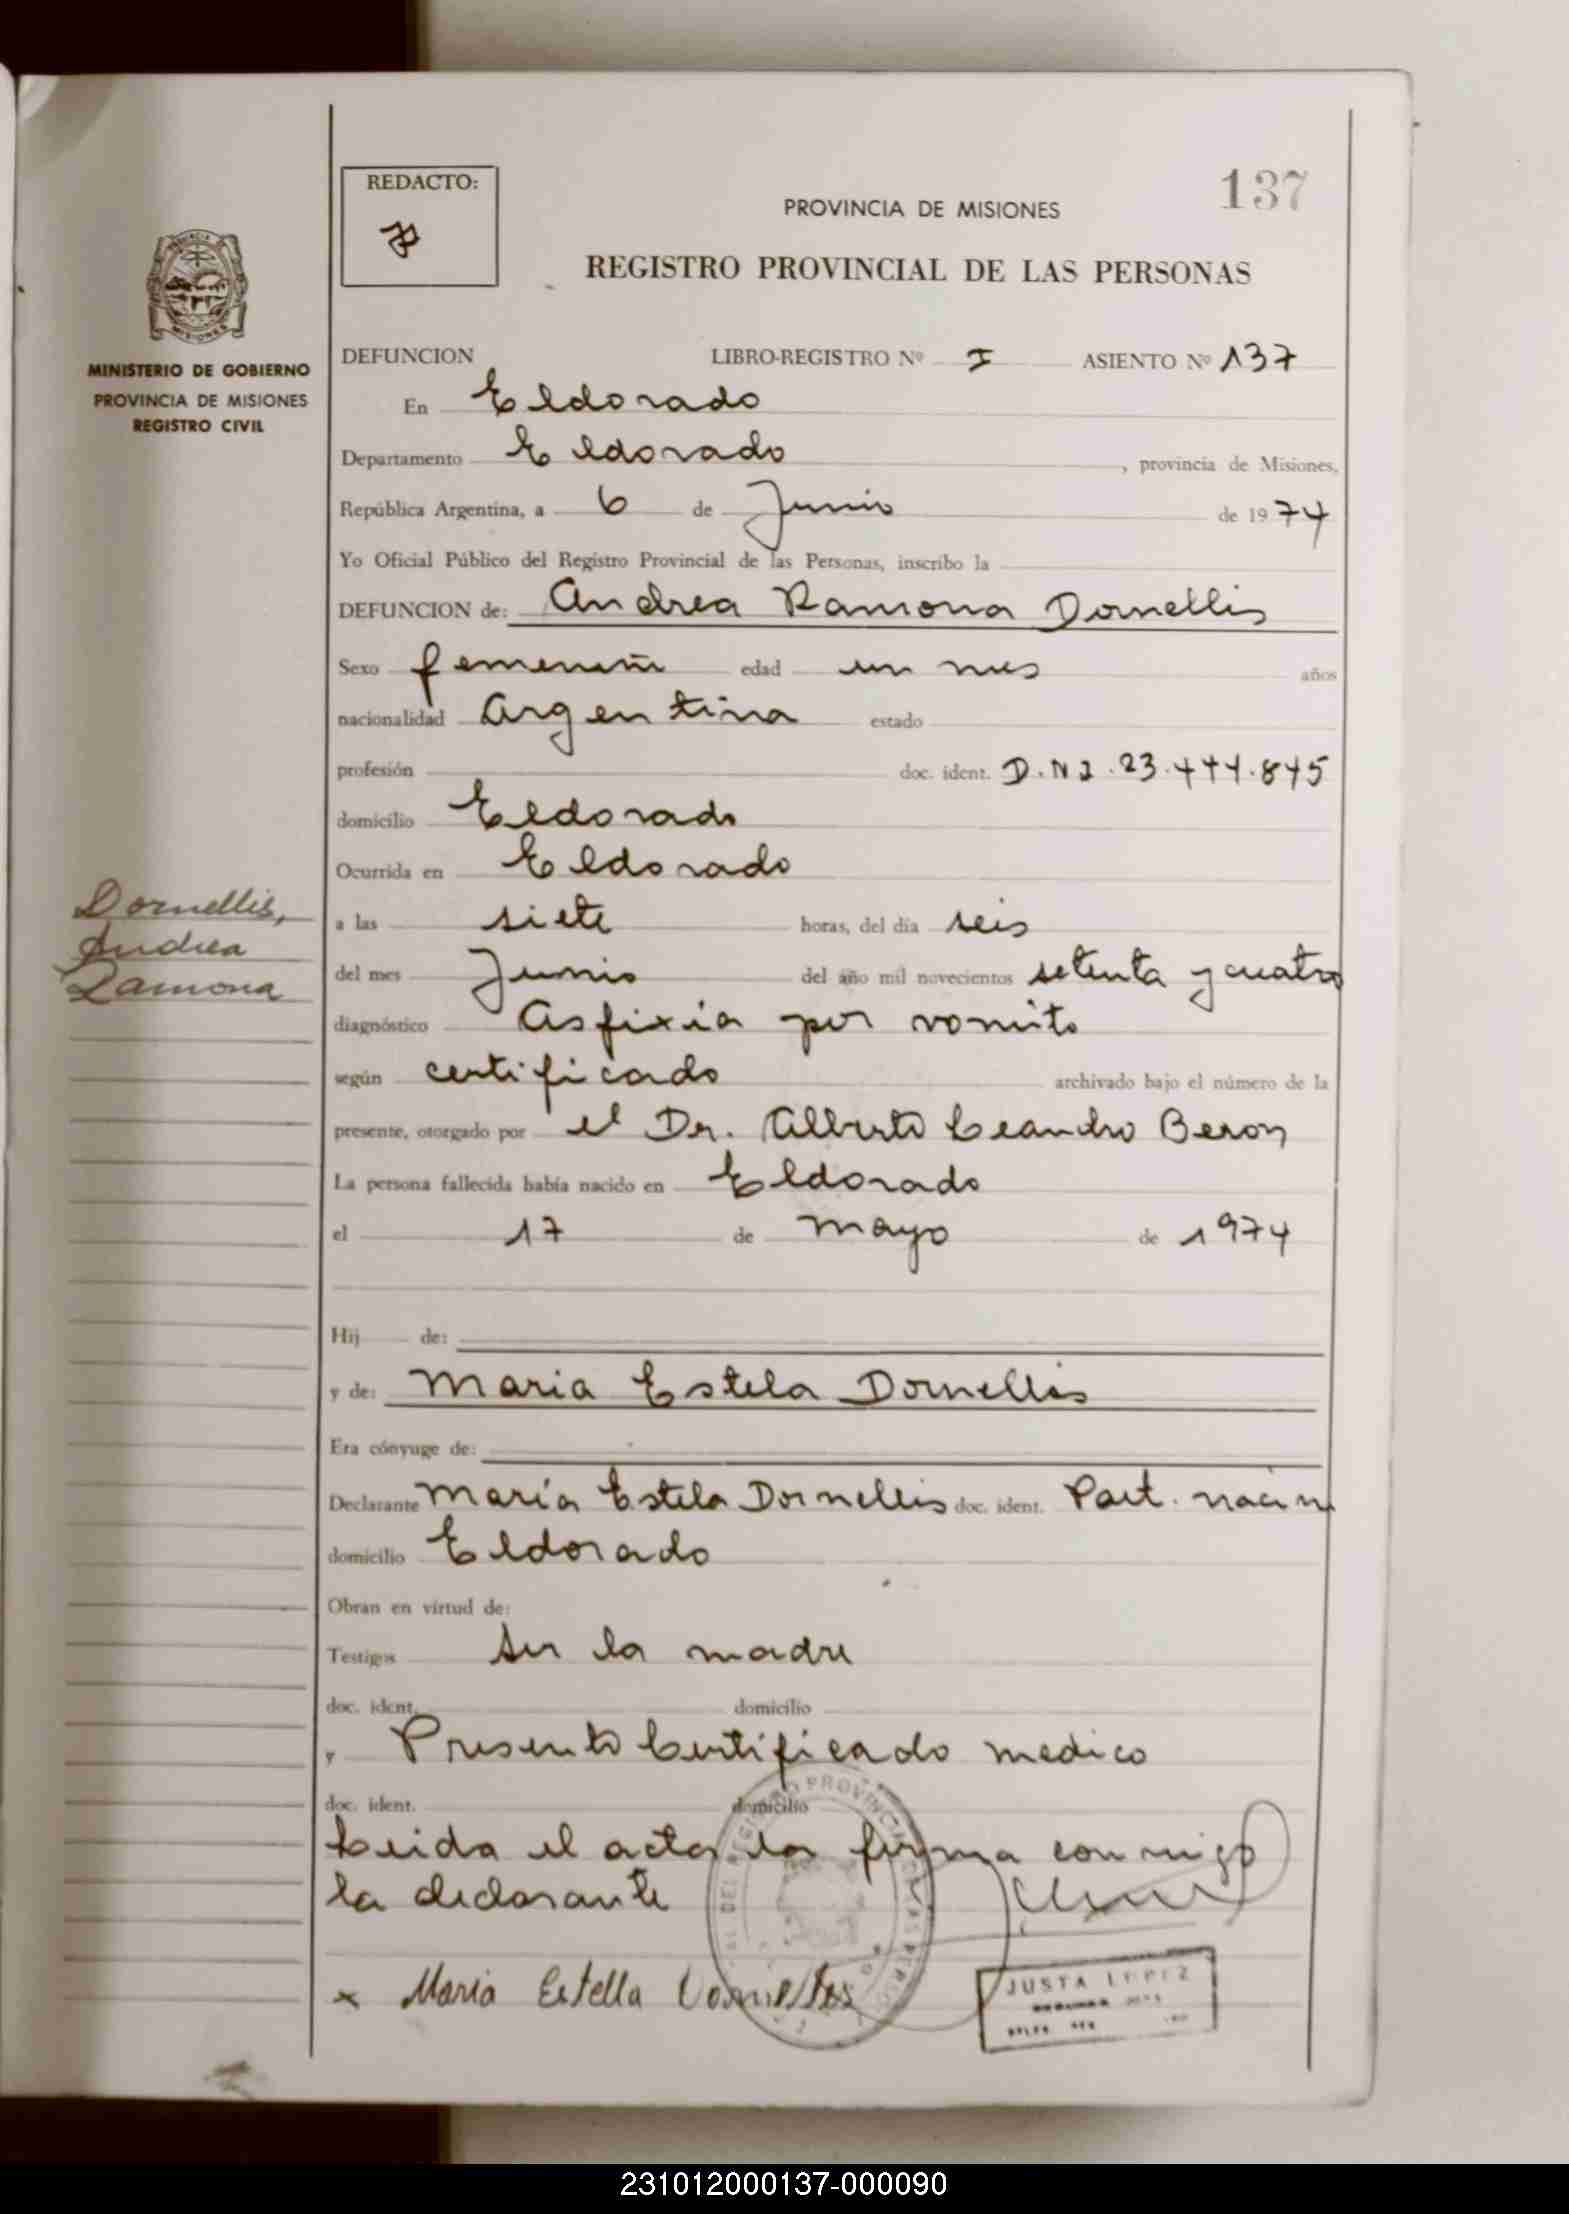 REDACTO:
137
PROVINCIA DE MISIONES
REGISTRO PROVINCIAL DE LAS PERSONAS
MINISTERIO DE GOBIERNO
PROVINCIA DE MISIONES
REGISTRO CIVIL
DEFUNCION LIBRO-REGISTRO Nº I ASIENTO Nº 137
En Eldorado
Departamento Eldorado , provincia de Misiones,
República Argentina, a 6 de Junio de 1974
Yo Oficial Público del Registro Provincial de las Personas, inscribo la
DEFUNCION de: Andrea Ramona Dornellis
Sexo femenino edad un mes años
nacionalidad Argentina estado
profesión doc. ident. D.N.I. 23.444.845
domicilio Eldorado
Ocurrida en Eldorado
Dornellis,
Andrea
Ramona
a las siete horas, del día seis
del mes Junio del año mil novecientos setenta y cuatro
diagnóstico Asfixia por vomito
según certificado archivado bajo el número de la
presente, otorgado por el Dr. Alberto Leandro Beron
La persona fallecida había nacido en Eldorado
el 17 de mayo de 1974
Hij de:
y de: Maria Estela Dornellis
Era cónyuge de:
Declarante María Estela Dornellis doc. ident. Part. nacim
domicilio Eldorado
Obran en virtud de:
Testigos Ser la madre
doc. ident. domicilio
y Presento Certificado medico
doc. ident. domicilio
Leida el acta la firma conmigo
la declarante
x Maria Estella Dornelles
JUSTA LOPEZ
231012000137-000090